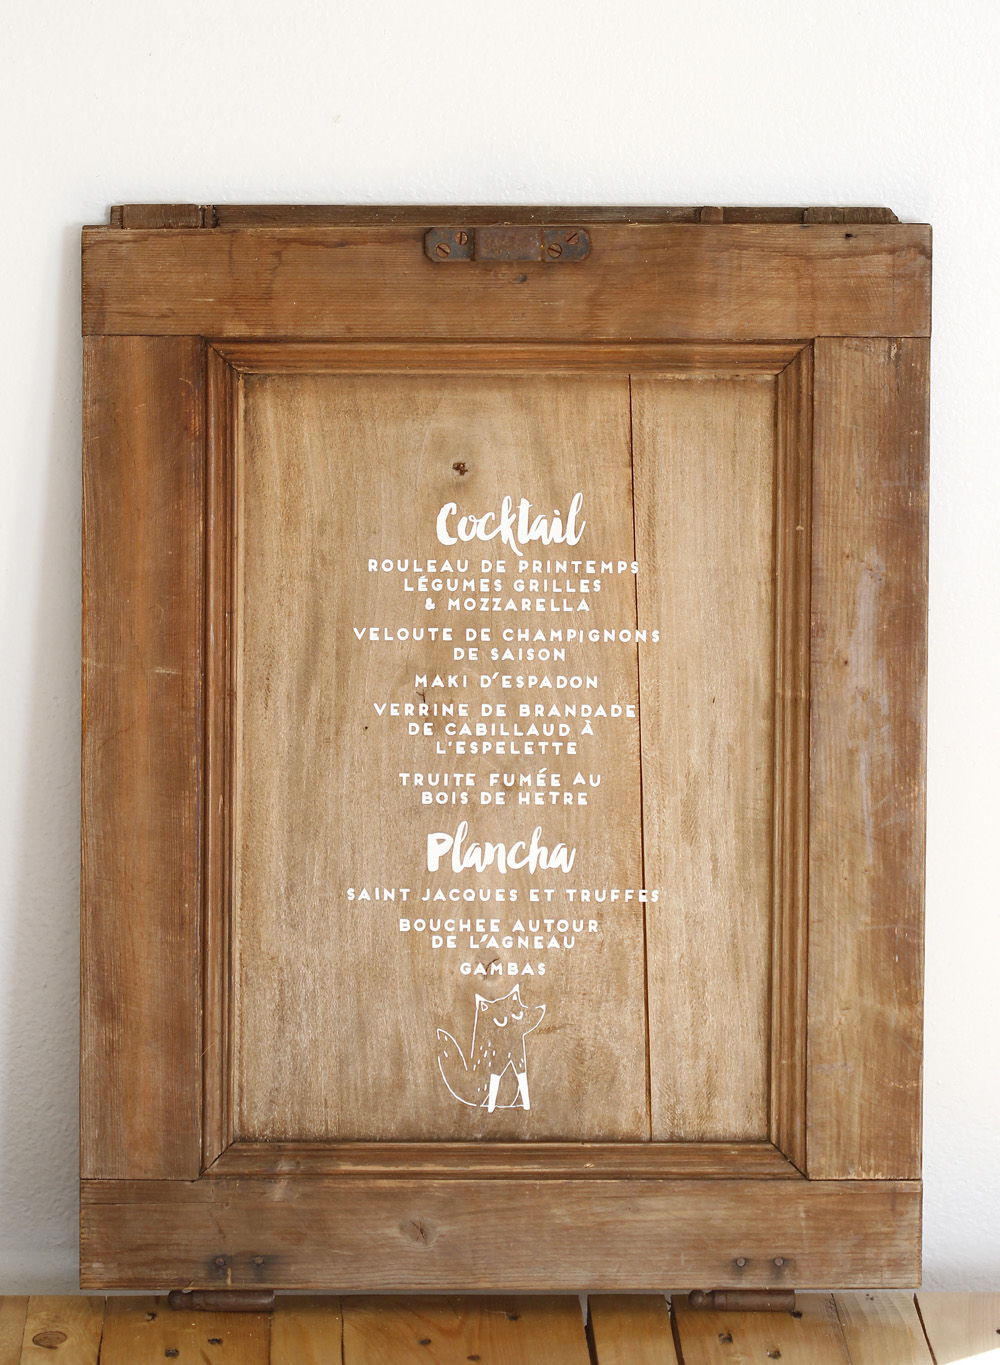 Cocktail
ROULEAU DE PRINTEMPS
LÉGUMES GRILLES
& MOZZARELLA
VELOUTE DE CHAMPIGNONS
DE SAISON
MAKI D'ESPADON
VERRINE DE BRANDADE
DE CABILLAUD À
L'ESPELETTE
TRUITE FUMÉE AU
BOIS DE HETRE
Plancha
SAINT JACQUES ET TRUFFES
BOUCHEE AUTOUR
DE L'AGNEAU
GAMBAS